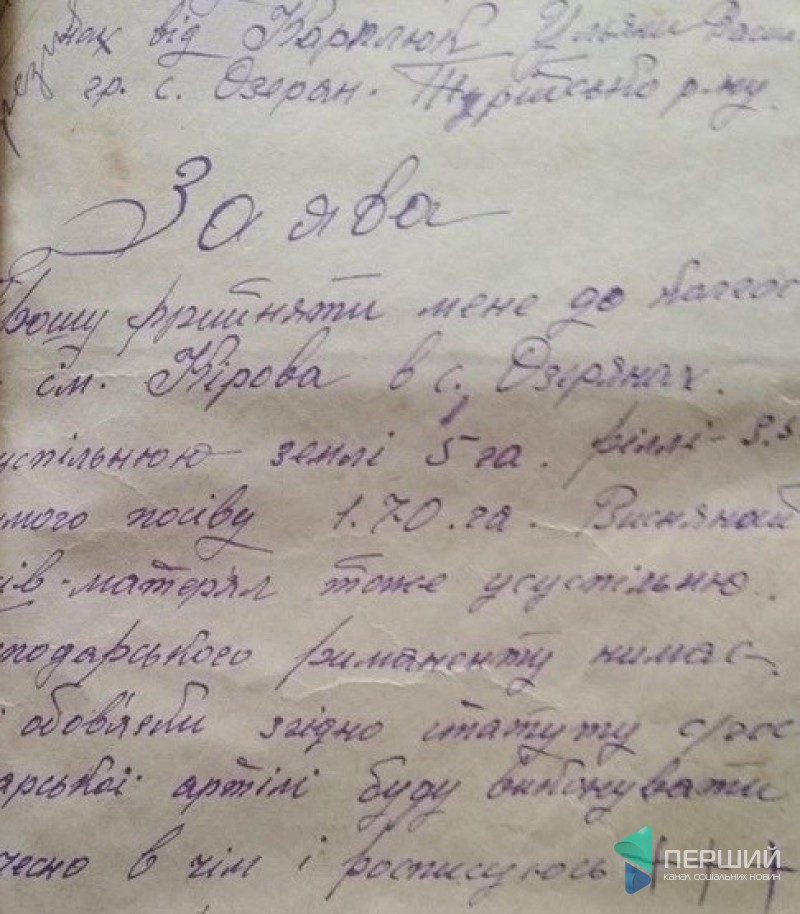 від Карплюк Уляни Васи
гр. с. Озерян. Турійсько р-ну.
Заява
Прошу прийняти мене до колгос
ім. Кірова в с. Озерянах.
успільнюю землі 5 га. ріллі - 3.5
мого посіву 1.70. га. Висняний
ів-матеріял тоже усуспільню.
подарського риманенту нимає.
обов'язки згідно статуту с/гос
арської артілі буду виконувати
чесно в чім і росписуюсь + + +
ПЕРШИЙ
КАНАЛ СОЦІАЛЬНИХ НОВИН